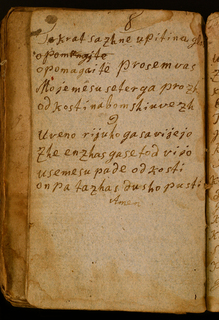 8
krat sazhne upitinu
opomagaite
opomagaite prosem vas
Mojemesuseterga prozh
od kosti nabom shiu vezh
9
Uveno rijuho gasavijejo
zhe enzhas gasetod vijo
usemesu pade od kosti
on pa tazhas dusho pusti
Amen